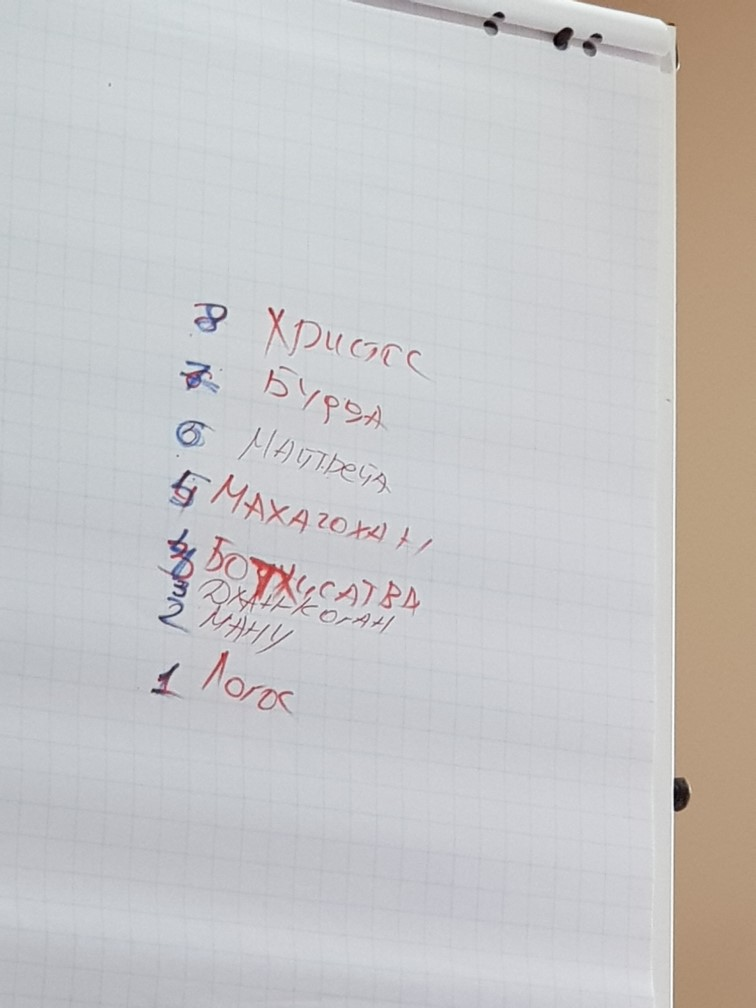 8 Христос
7 Будда
6 Майтрейя
5 Махагохан
4 Бодхисатва
3 Дхан-Коган
2 Ману
1 Логос